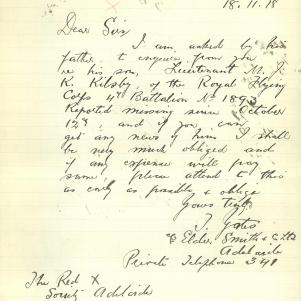 18.11.18
Dear Sir
I am asked by his
father to enquire from you
re his son, Lieutenant M. J.
K. Kilsby, of the Royal Flying
Corps 4th Battalion No
Reported missing since October
12th, and if you can
get any news of him I shall
be very much obliged and
if any expense will pay
same, please attend to this
as early as possible & oblige
Yours truly
J. Yates
c/o Elder, Smith & Co Ltd
Adelaide
Private Telephone 341
The Red X
Society Adelaide